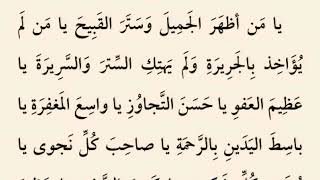 يا مَن أَظهَرَ الجَمِيلَ وَسَتَرَ القَبِيحَ يا مَن لَم
يُؤَاخِذ بِالجَرِيرَةِ وَلَم يَهتِكِ السِّترَ وَالسَّرِيرَةَ يا
عَظِيمَ العَفوِ يا حَسَنَ التَّجاوُزِ يا واسِعَ المَغفِرَةِ يا
باسِطَ اليَدَينِ بِالرَّحمَةِ يا صاحِبَ كُلِّ نَجوى يا